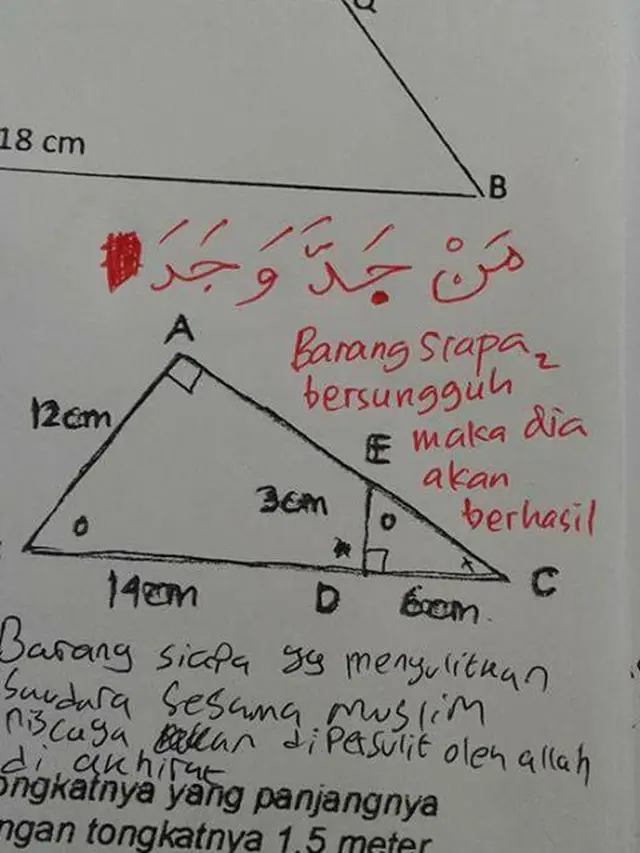 Q
18 cm
B
مَنْ جَدَّ وَجَدَ
A
Barang siapa2
bersungguh
maka dia
akan
berhasil
12cm
E
3cm
14cm
D
6cm
C
Barang siapa yg menyulitkan
Saudara Sesama muslim
niscaya akan dipersulit oleh allah
di akhirat
ongkatnya yang panjangnya
ngan tongkatnya 1,5 meter